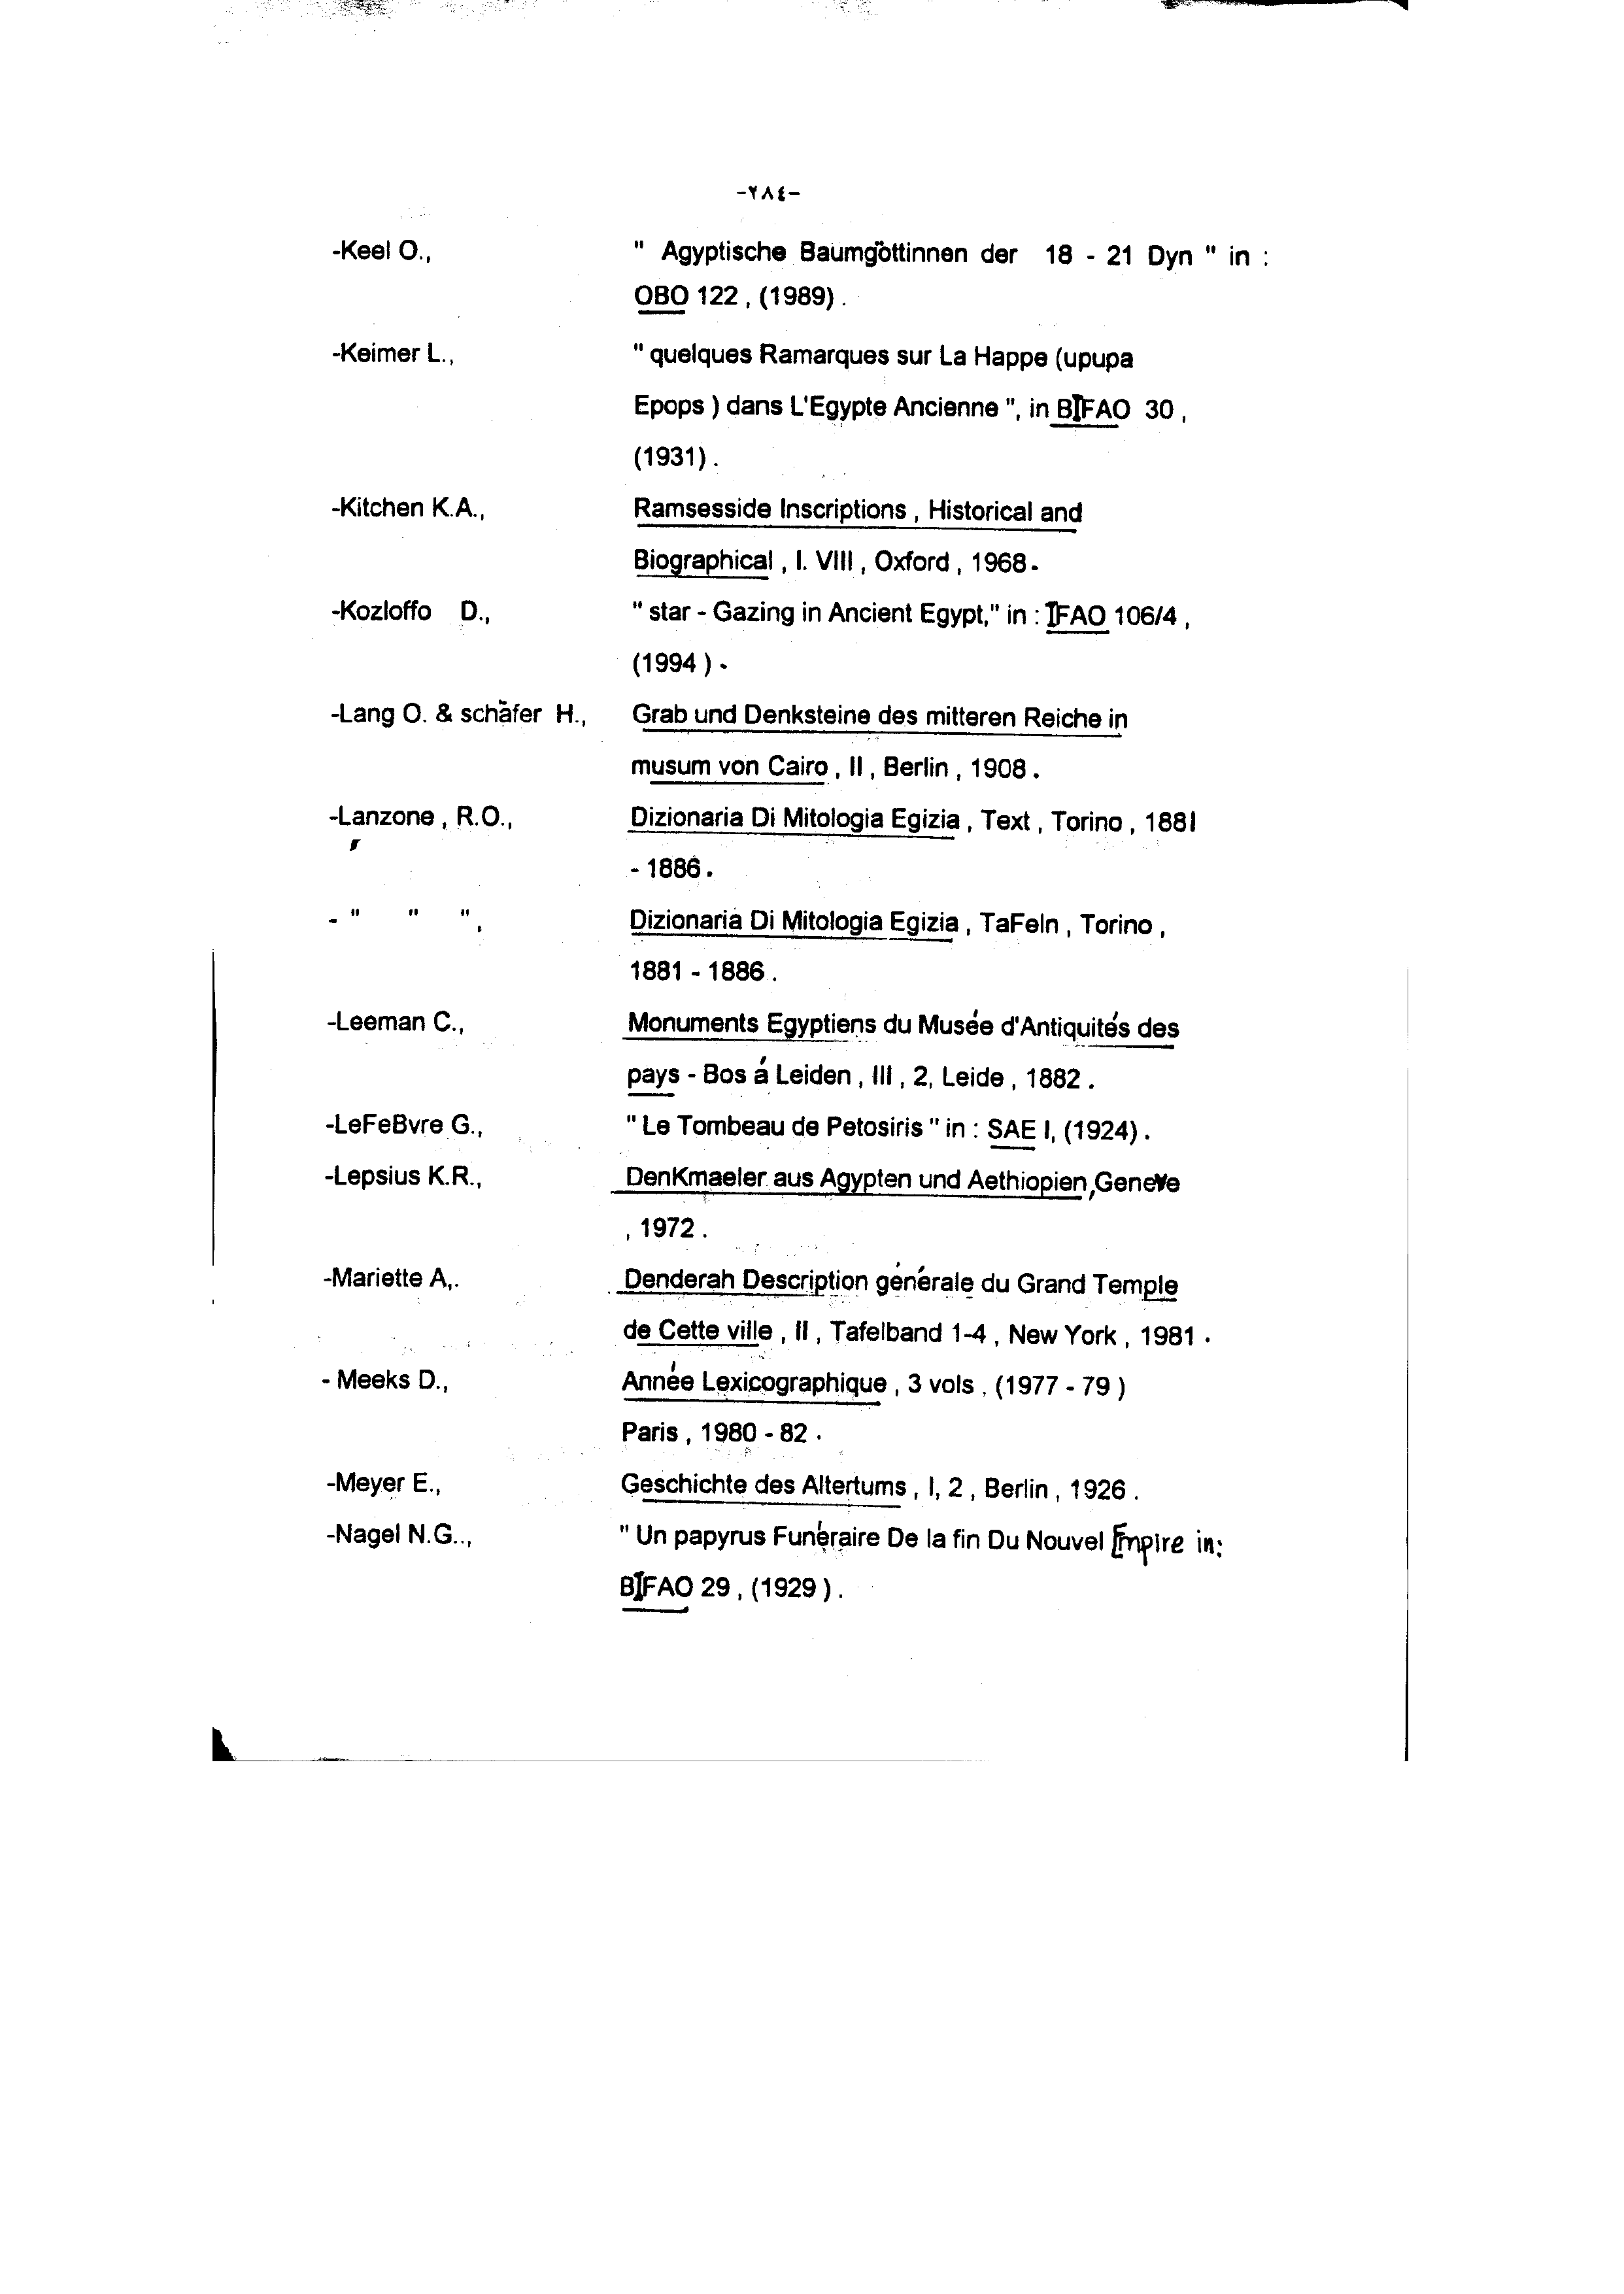 -٢٨٤-
-Keel O., " Agyptische Baumgöttinnen der 18 - 21 Dyn " in :
OBO 122 , (1989) .
-Keimer L., " quelques Ramarques sur La Happe (upupa
Epops ) dans L'Egypte Ancienne ", in BIFAO 30 ,
(1931) .
-Kitchen K.A., Ramsesside Inscriptions , Historical and
Biographical , I. VIII , Oxford , 1968.
-Kozloffo D., " star - Gazing in Ancient Egypt," in : IFAO 106/4 ,
(1994 ) .
-Lang O. & schäfer H., Grab und Denksteine des mitteren Reiche in
musum von Cairo , II , Berlin , 1908 .
-Lanzone , R.O., Dizionaria Di Mitologia Egizia , Text , Torino , 1881
- 1886 .
- " " ", Dizionaria Di Mitologia Egizia , TaFeln , Torino ,
1881 - 1886 .
-Leeman C., Monuments Egyptiens du Musée d'Antiquités des
pays - Bos á Leiden , III , 2, Leide , 1882 .
-LeFeBvre G., " Le Tombeau de Petosiris " in : SAE I, (1924) .
-Lepsius K.R., DenKmaeler aus Agypten und Aethiopien,Geneve
, 1972 .
-Mariette A,. Denderah Description générale du Grand Temple
de Cette ville , II , Tafelband 1-4 , New York , 1981 .
- Meeks D., Année Lexicographique , 3 vols , (1977 - 79 )
Paris , 1980 - 82 .
-Meyer E., Geschichte des Altertums , I, 2 , Berlin , 1926 .
-Nagel N.G.., " Un papyrus Funéraire De la fin Du Nouvel Empire in:
BIFAO 29 , (1929 ) .